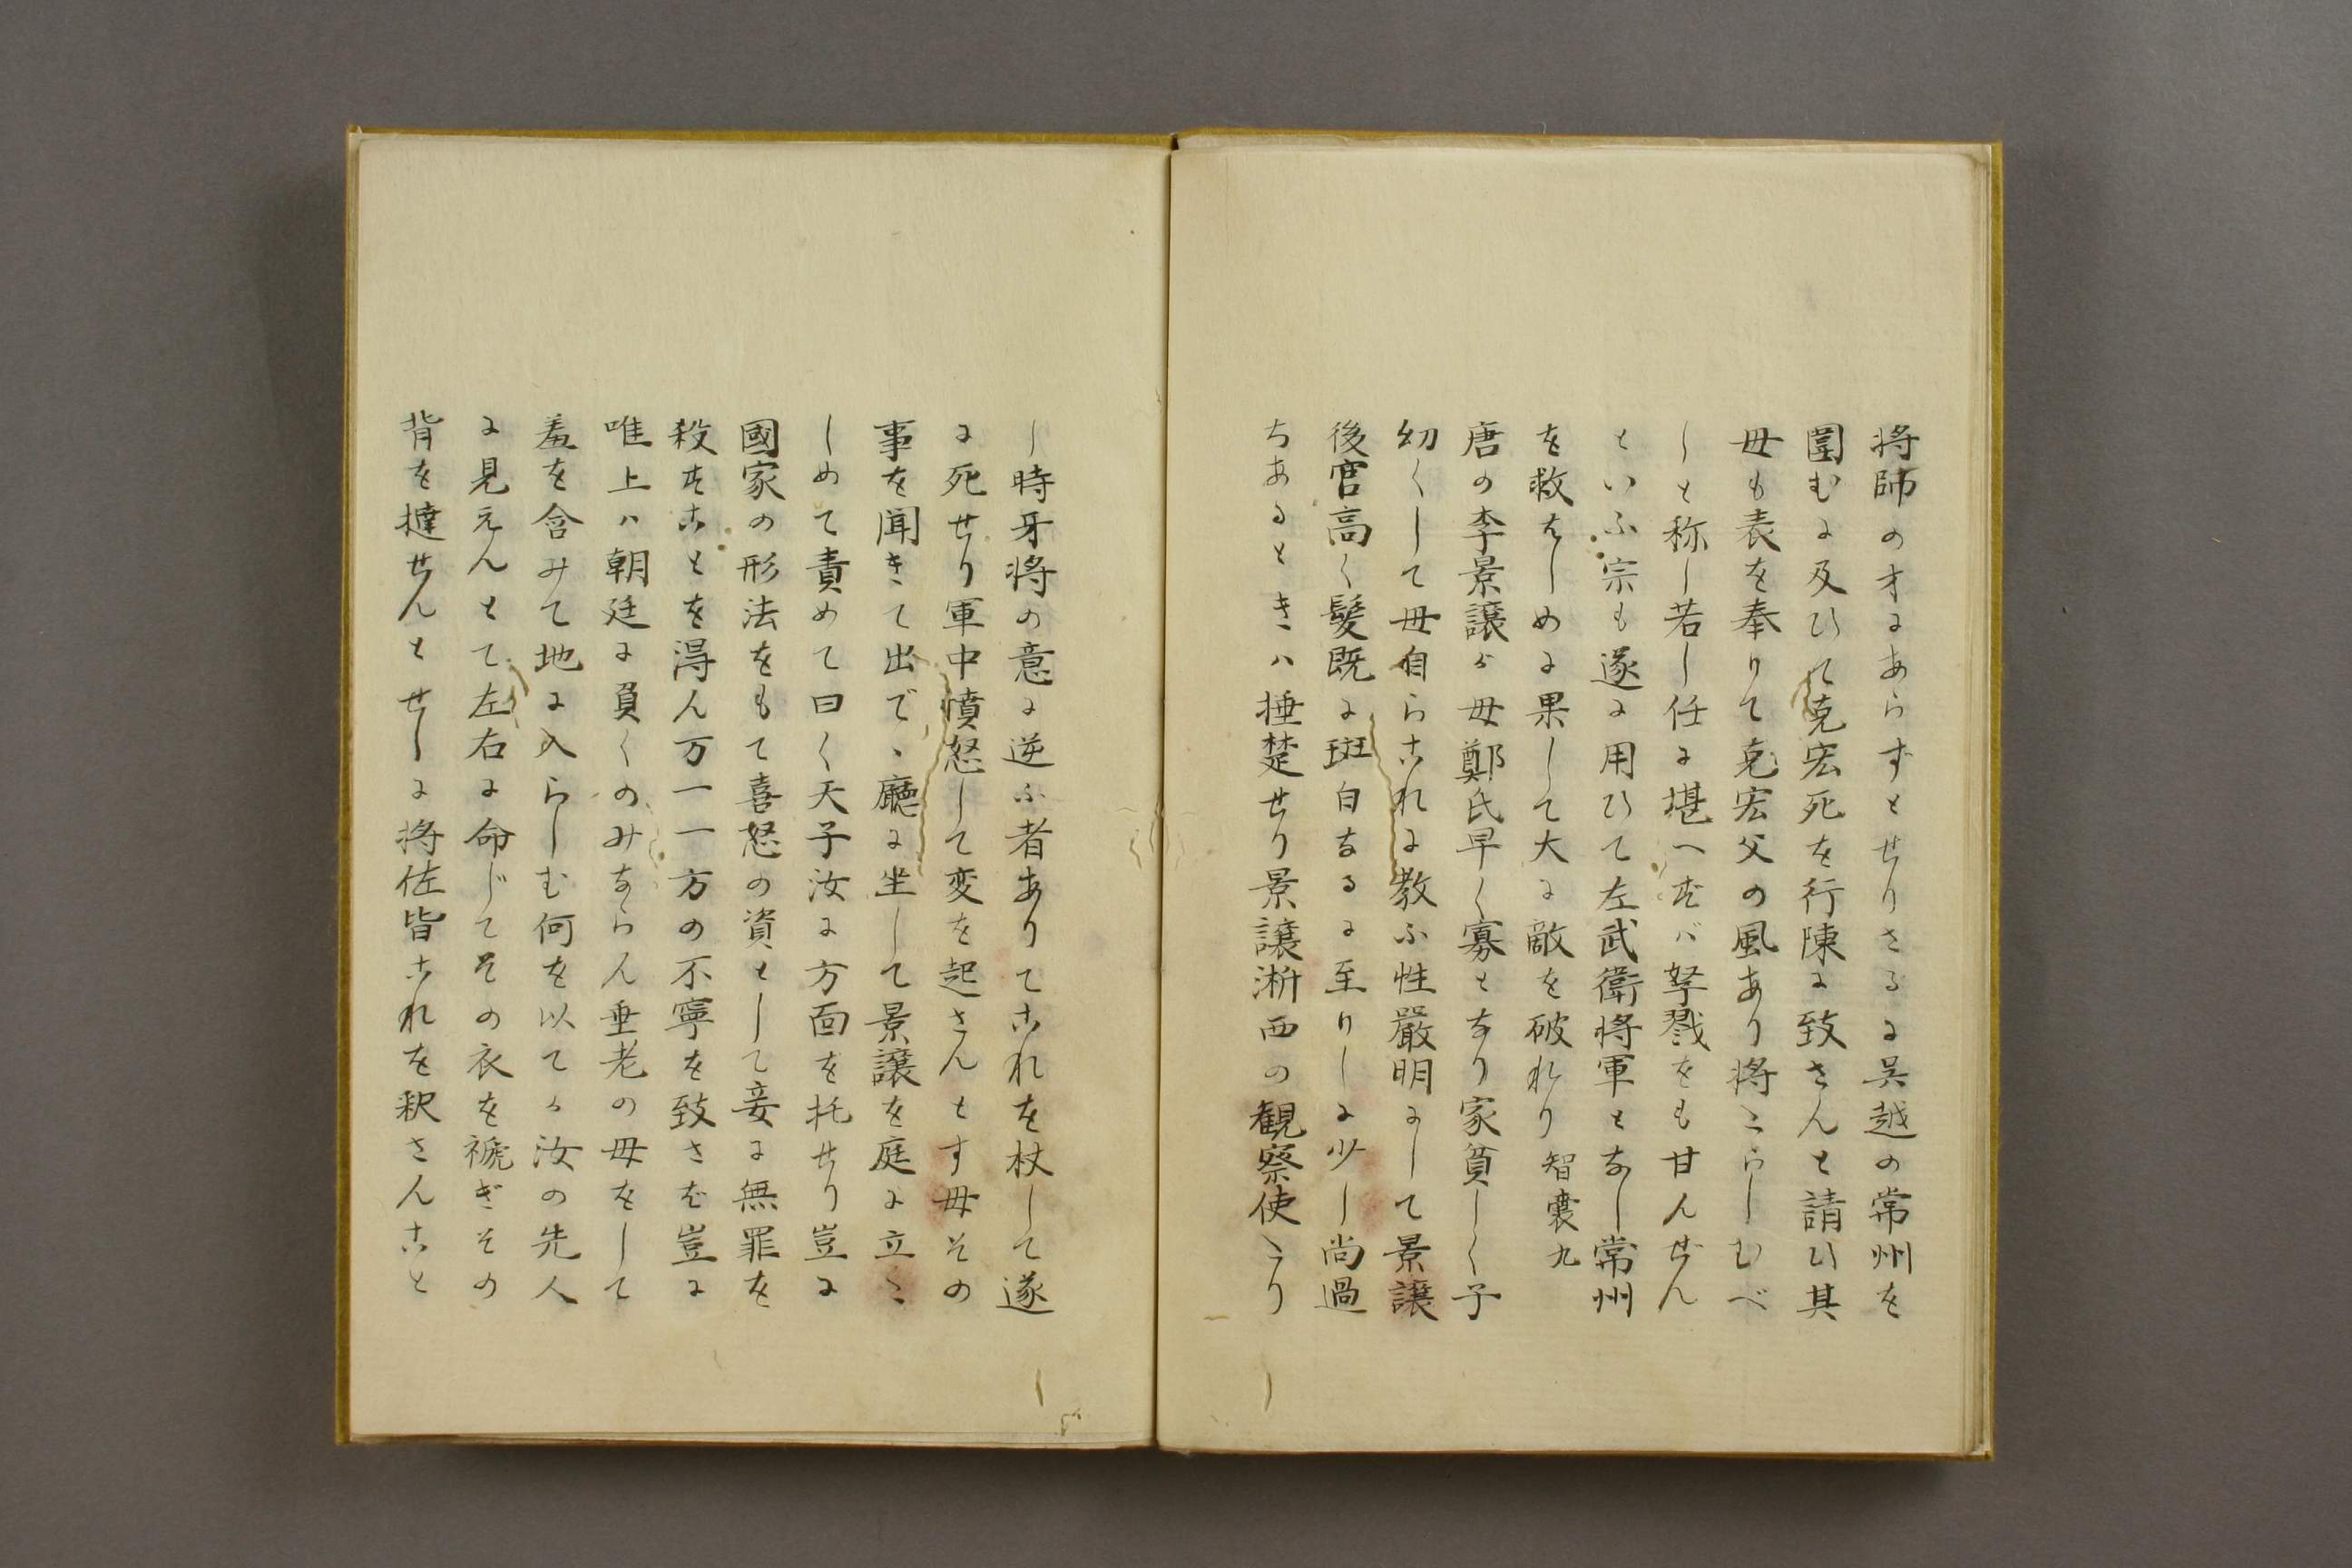 将師の才にあらずとせりさるに呉越の常州を
圍むに及びて克宏死を行陳に致さんと請ひ其
母も表を奉りて克宏父の風あり将たらしむべ
しと称し若し任に堪へずバ孥戮をも甘んぜん
といふ宗も遂に用ひて左武衛将軍となし常州
を救はしめに果して大に敵を破れり智嚢九
唐の李景譲が母鄭氏早く寡となり家貧しく子
幼くして母自らこれに教ふ性嚴明にして景譲
後官高く髮既に斑白なるに至りしに少し尚過
ちあるときハ捶楚せり景譲淅西の観察使たり
し時牙将の意に逆ふ者ありてこれを杖して遂
に死せり軍中憤怒して変を起さんとす母その
事を聞きて出で丶廳に坐して景譲を庭に立た
しめて責めて曰く天子汝に方面を托せり豈に
國家の形法をもて喜怒の資として妾に無罪を
殺すことを得ん万一一方の不寧を致さば豈に
唯上ハ朝廷に負くのみならん垂老の母をして
羞を含みて地に入らしむ何を以てか汝の先人
に見えんとて左右に命じてその衣を褫ぎその
背を撻せんとせしに将佐皆これを釈さんこと